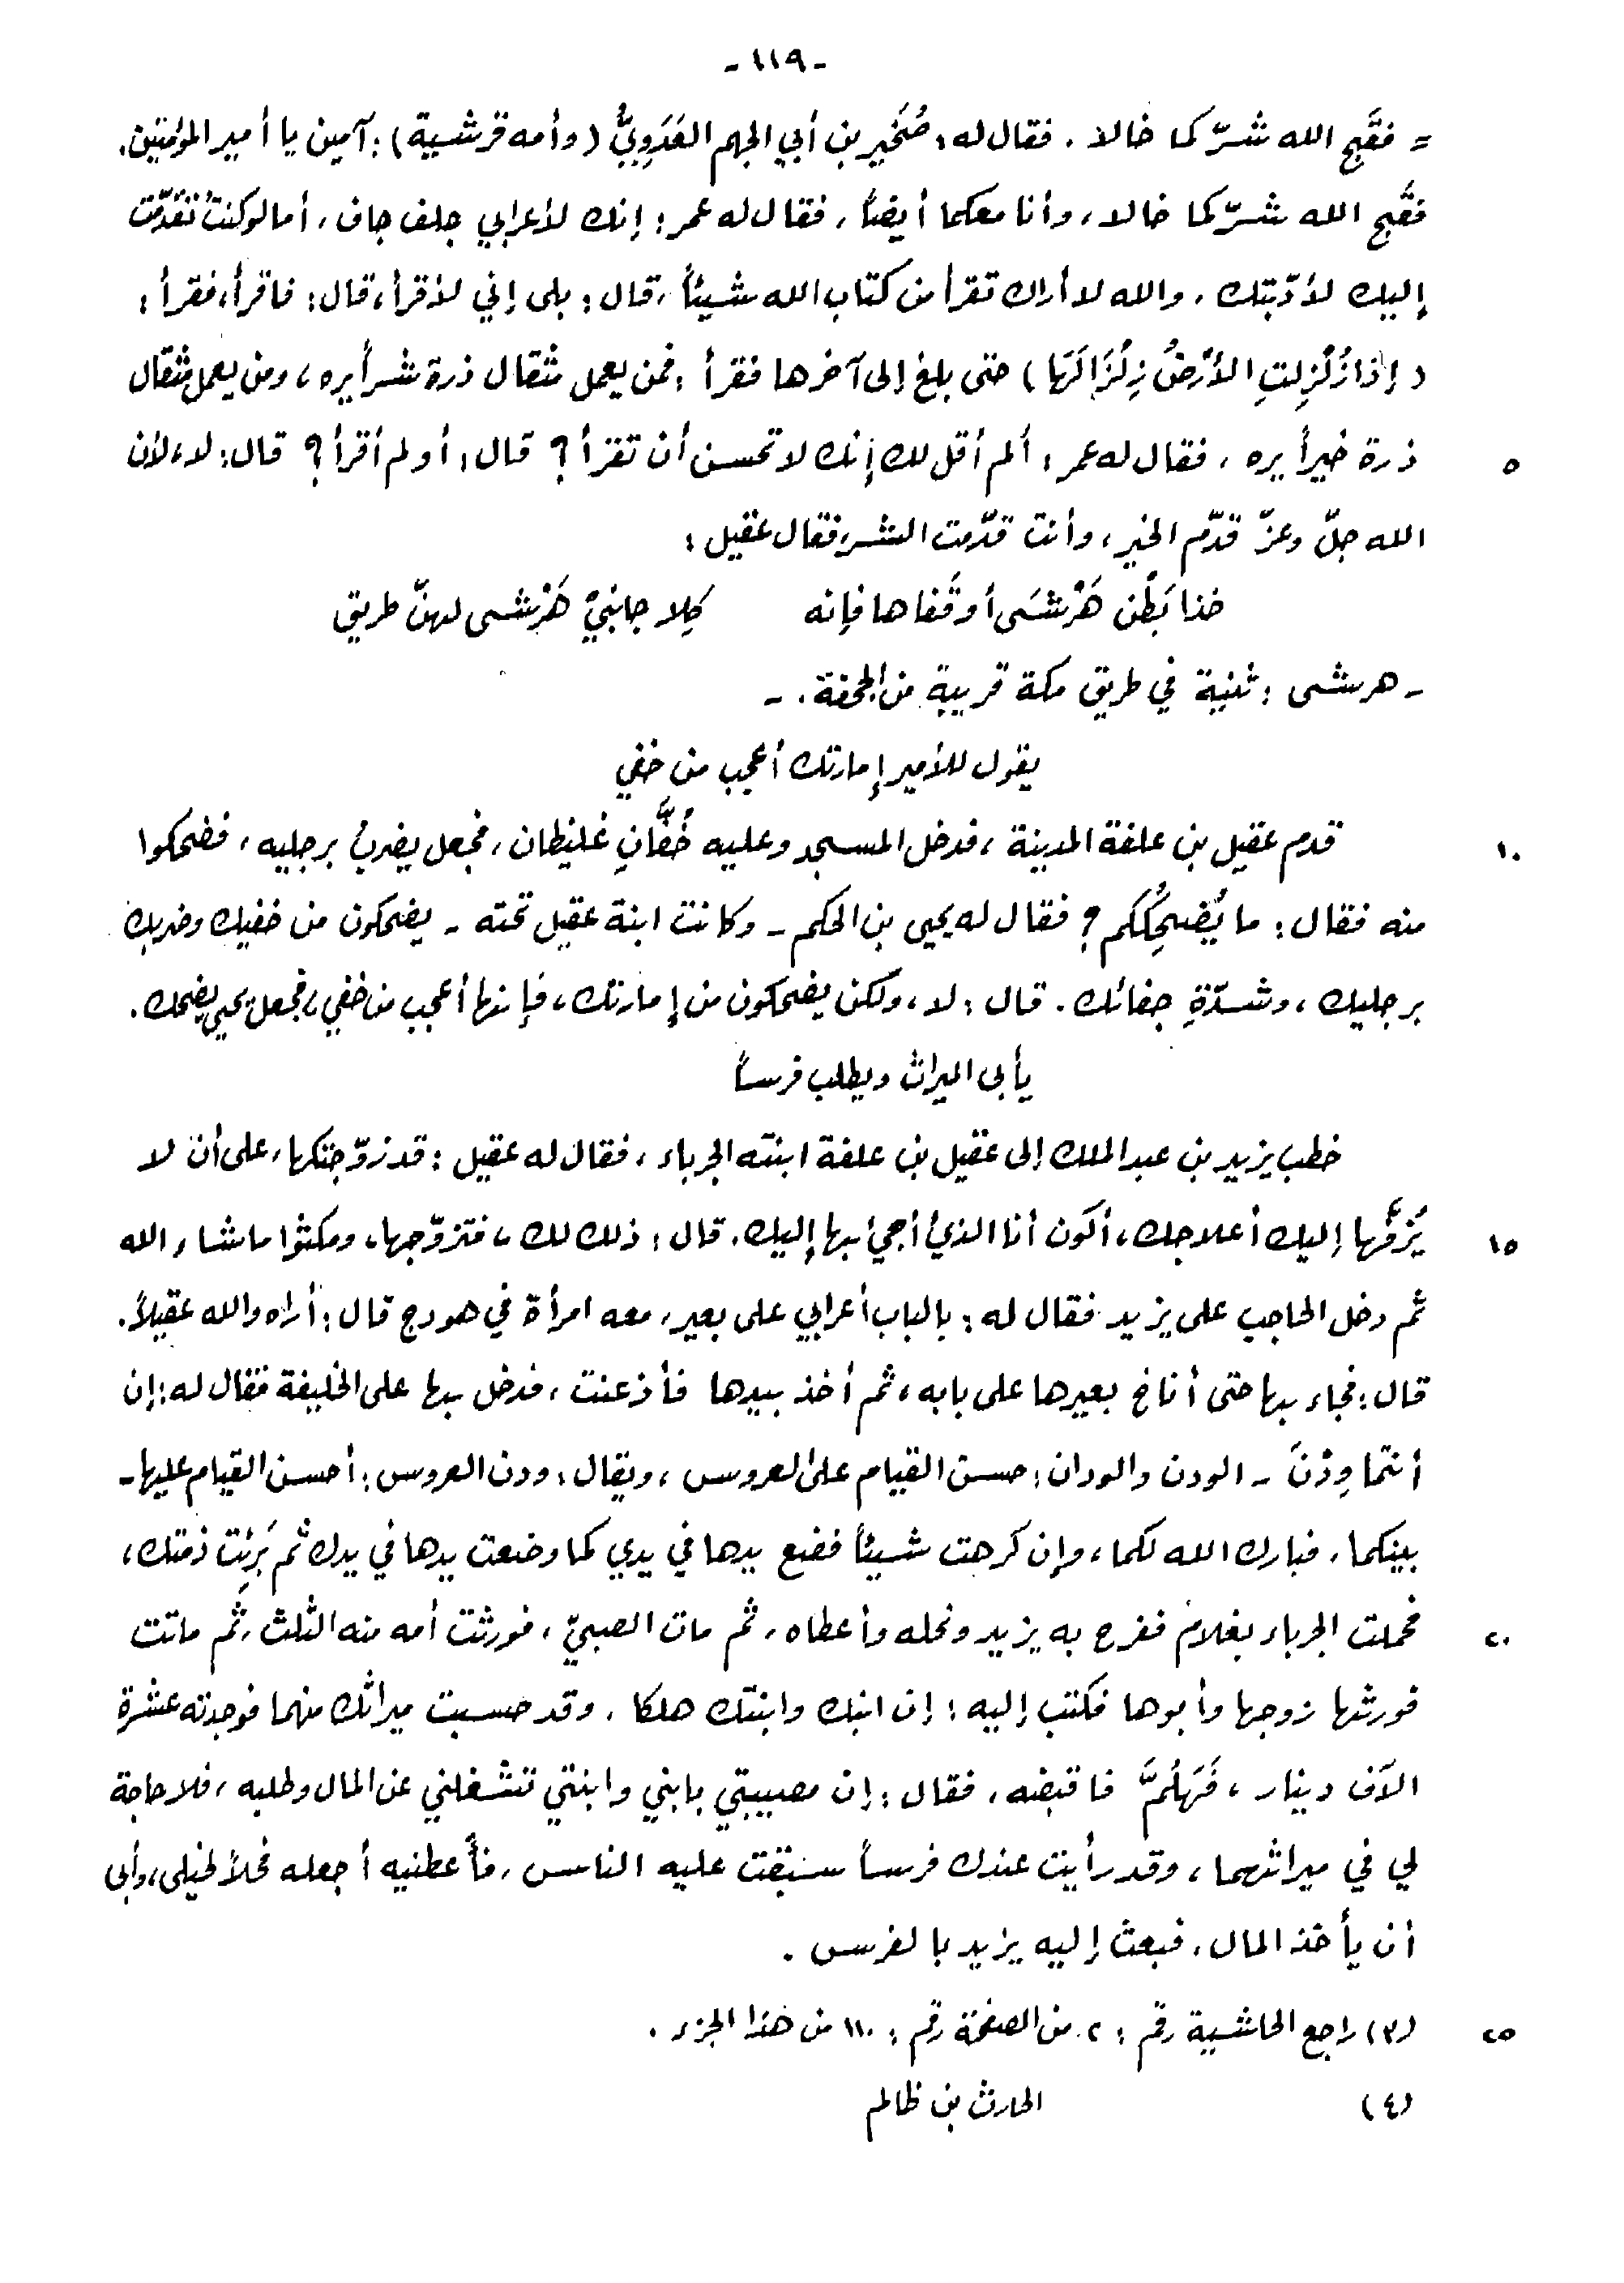 - ١١٩ -
= فقَبَّح الله شرّكما خالا . فقال له : صُخَير بن أبي الجهم العَدَوِيُّ (وأمه قرشية) : آمين يا أمير المؤمنين .
فقَبَّح الله شرّكما خالا ، وأنا معكما أيضاً ، فقال له عمر : إنك لأعرابي جلف جاف ، أما لو كنتُ تقدّمت
إليك لأدّبتك ، والله لا أراك تقرأ من كتاب الله شيئاً ، قال : بلى إني لأقرأ ، قال : فاقرأ ، فقرأ :
(إذا زُلْزِلتِ الأرْضُ زِلْزَالَهَا) حتى بلغ إلى آخرها فقرأ : فمن يعمل مثقال ذرة شراً يره ، ومن يعمل مثقال
ذرة خيراً يره ، فقال له عمر : ألم أقل لك إنك لا تحسن أن تقرأ ؟ قال : أولم أقرأ ؟ قال : لا ، لأن ٥
الله جلّ وعزّ قدّم الخير ، وأنت قدّمت الشر، فقال عقيل :
خذا بَطْن هَرْشَى أو قَفاها فإنه كِلا جانبَيْ هَرْشى لهنّ طريق
- هرشى : ثنية في طريق مكة قريبة من الجحفة . -
يقول للأمير إمارتك أعجب من خفي
قدم عقيل بن علفة المدينة ، فدخل المسجد وعليه خُفَّانِ غليظان ، فجعل يضرب برجليه ، فضحكوا ١٠
منه فقال : ما يُضحِكُكم ؟ فقال له يحيى بن الحكم - وكانت ابنة عقيل تحته - يضحكون من خفيك وضربك
برجليك ، وشدّةِ جفائك . قال : لا ، ولكن يضحكون من إمارتك ، فإنها أعجب من خفي ، فجعل يحيى يضحك .
يأبى الميراث ويطلب فرساً
خطب يزيد بن عبد الملك إلى عقيل بن علفة ابنته الجرباء ، فقال له عقيل : قد زوّجتكها ، على أن لا
يَزُفَّها إليك أعلاجك ، أكون أنا الذي أجيء بها إليك . قال : ذلك لك ، فتزوّجها ، ومكثوا ما شاء الله ١٥
ثم دخل الحاجب على يزيد فقال له : بالباب أعرابي على بعير ، معه امرأة في هودج قال : أراه والله عقيلاً .
قال : فجاء بها حتى أناخ بعيرها على بابه ، ثم أخذ بيدها فأذعنت ، فدخل بها على الخليفة فقال له : إن
أنتما وِدْنَ - الودن والودان : حسن القيام على العروس ، ويقال : ودن العروس : أحسن القيام عليها -
بينكما ، فبارك الله لكما ، وإن كرهت شيئاً فضع يدها في يدي كما وضعت يدها في يدك ثم بَرِئت ذمتك ،
فحملت الجرباء بغلام ففرح به يزيد ونحله وأعطاه ، ثم مات الصبيّ ، فورثت أمه منه الثلث ، ثم ماتت ٢٠
فورثها زوجها وأبوها فكتب إليه : إن ابنك وابنتك هلكا ، وقد حسبت ميراثك منهما فوجدته عشرة
الآف دينار ، فَهَلُمَّ فاقبضه ، فقال : إن مصيبتي بابني وابنتي تشغلني عن المال وطلبه ، فلا حاجة
لي في ميراثهما ، وقد رأيت عندك فرساً سبقت عليه الناس ، فأعطنيه أجعله فحلاً لخيلى ، وأبى
أن يأخذ المال ، فبعث إليه يزيد بالفرس .
(٣) راجع الحاشية رقم : ٢ من الصفحة رقم : ١١٠ من هذا الجزء . ٢٥
(٤) الحارث بن ظالم